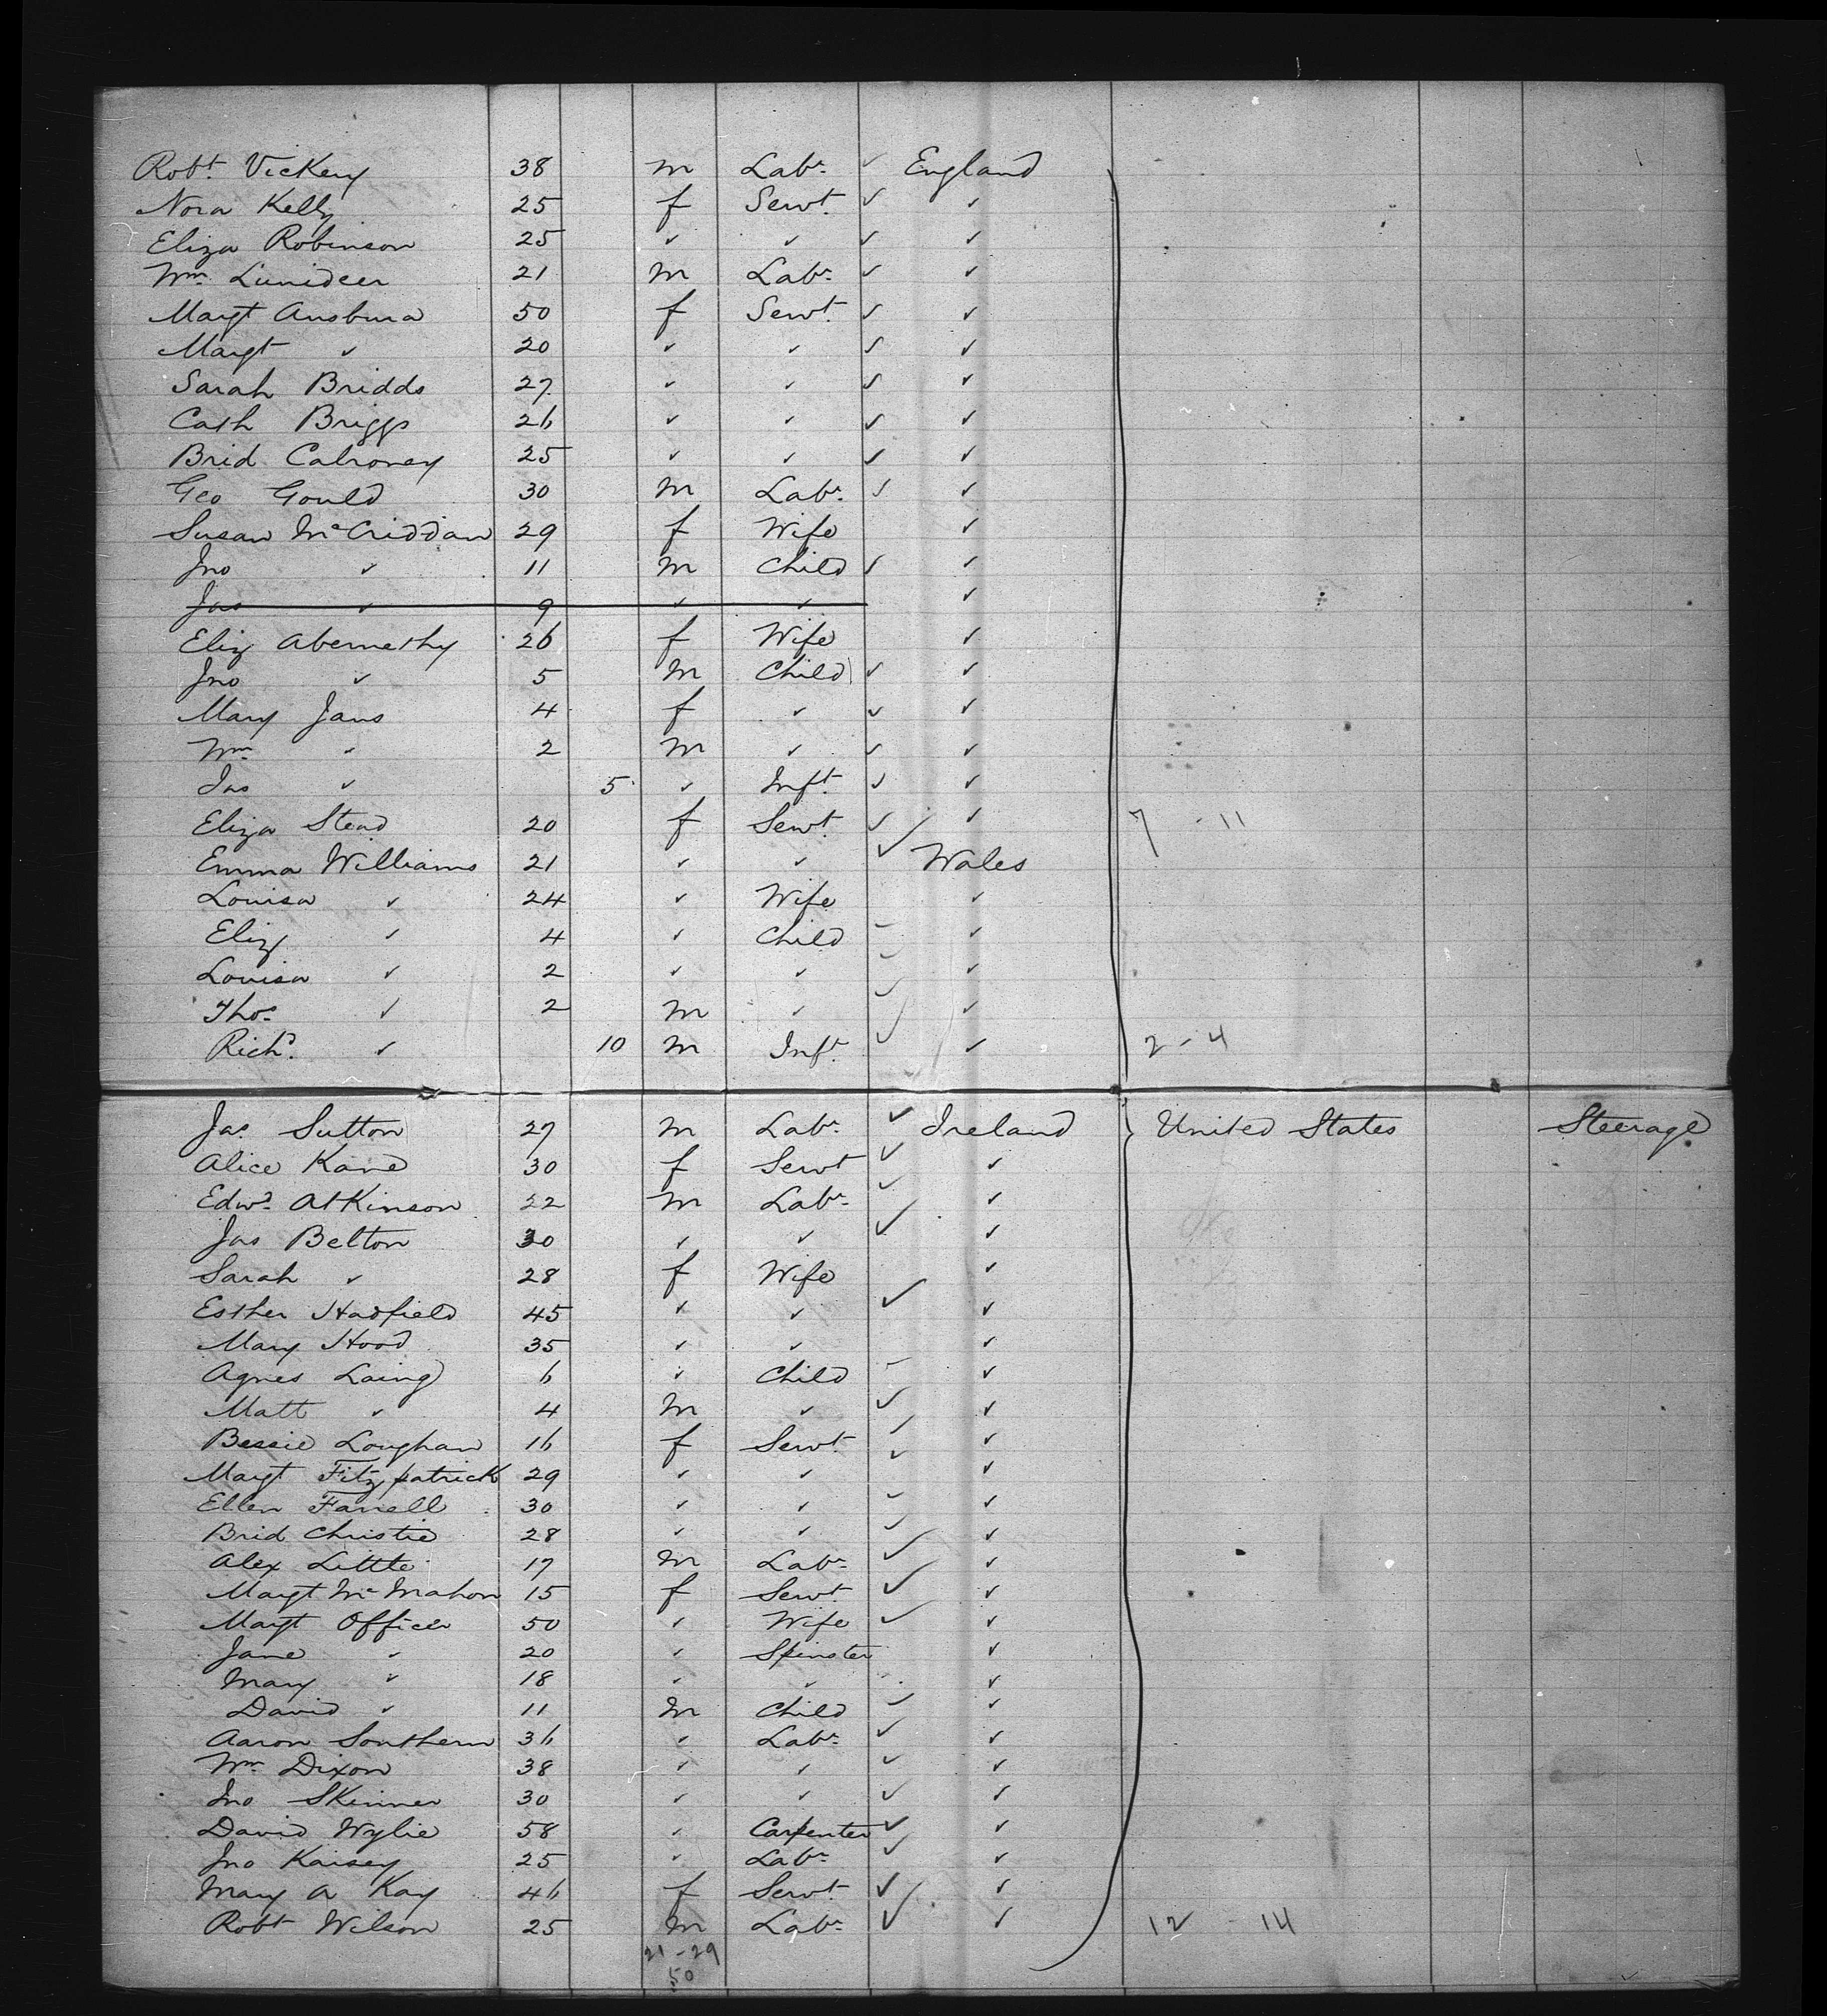 Robt. Vickery 38 m Labr. ✓ England
Nora Kelly 25 f Servt. ✓ ✓
Eliza Robinson 25 ✓ ✓ ✓ ✓
Wm. 21 m Labr. ✓ ✓
Margt 50 f Servt. ✓ ✓
Margt ✓ 20 ✓ ✓ ✓ ✓
Sarah Bridds 27 ✓ ✓ ✓ ✓
Cath Briggs 26 ✓ ✓ ✓ ✓
Brid Calroney 25 ✓ ✓ ✓ ✓
Geo Gould 30 m Labr. ✓ ✓
Susan McCriddan 29 f Wife ✓
Jno ✓ 11 m Child ✓ ✓
Jas ✓ 9 ✓ ✓ ✓
Eliz Abernethy 26 f Wife ✓
Jno ✓ 5 m Child ✓ ✓
Mary Jans 4 f ✓ ✓ ✓
Wm. ✓ 2 m ✓ ✓ ✓
Jas ✓ 5 ✓ Inft. ✓ ✓
Eliza Stead 20 f Servt. ✓ ✓ 7 - 11
Emma Williams 21 ✓ ✓ ✓ Wales
Louisa ✓ 24 ✓ Wife ✓
Eliz ✓ 4 ✓ Child ✓ ✓
Louisa ✓ 2 ✓ ✓ ✓ ✓
Thos. ✓ 2 m ✓ ✓ ✓
Richd. ✓ 10 m Inft. ✓ ✓ 2 - 4
Jas. Sutton 27 m Labr. ✓ Ireland } United States Steerage
Alice Kane 30 f Servt ✓ ✓
Edwd. Atkinson 22 m Labr. ✓ ✓
Jas Belton 30 ✓ ✓ ✓ ✓
Sarah ✓ 28 f Wife ✓
Esther Hadfield 45 ✓ ✓ ✓ ✓
Mary Hood 35 ✓ ✓ ✓
Agnes Laing 6 ✓ Child ✓ ✓
Matt ✓ 4 m ✓ ✓ ✓
Bessie Loughan 16 f Servt. ✓ ✓
Margt Fitzpatrick 29 ✓ ✓ ✓ ✓
Ellen Farrell 30 ✓ ✓ ✓ ✓
Brid Christie 28 ✓ ✓ ✓ ✓
Alex Little 17 m Labr. ✓ ✓
Margt McMahon 15 f Servt. ✓ ✓
Margt Officer 50 ✓ Wife ✓ ✓
Jane ✓ 20 ✓ Spinster ✓
Mary ✓ 18 ✓ ✓ ✓
David ✓ 11 m Child ✓ ✓
Aaron Southern 36 ✓ Labr. ✓ ✓
Wm. Dixon 38 ✓ ✓ ✓ ✓
Jno Skinner 30 ✓ ✓ ✓ ✓
David Wylie 58 ✓ Carpenter ✓ ✓
Jno Kaisey 25 ✓ Labr. ✓ ✓
Mary A Kay 46 f Servt. ✓ ✓
Robt Wilson 25 m Labr. ✓ ✓ 12 - 14
21 - 29
50